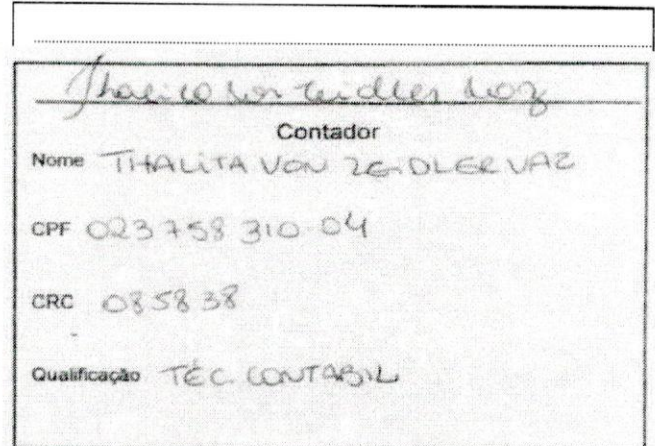 Thalita Von Zeidler Vaz
Contador
Nome THALITA VON ZEIDLER VAZ
CPF 023758310-04
CRC 085838
Qualificação TÉC. CONTABIL